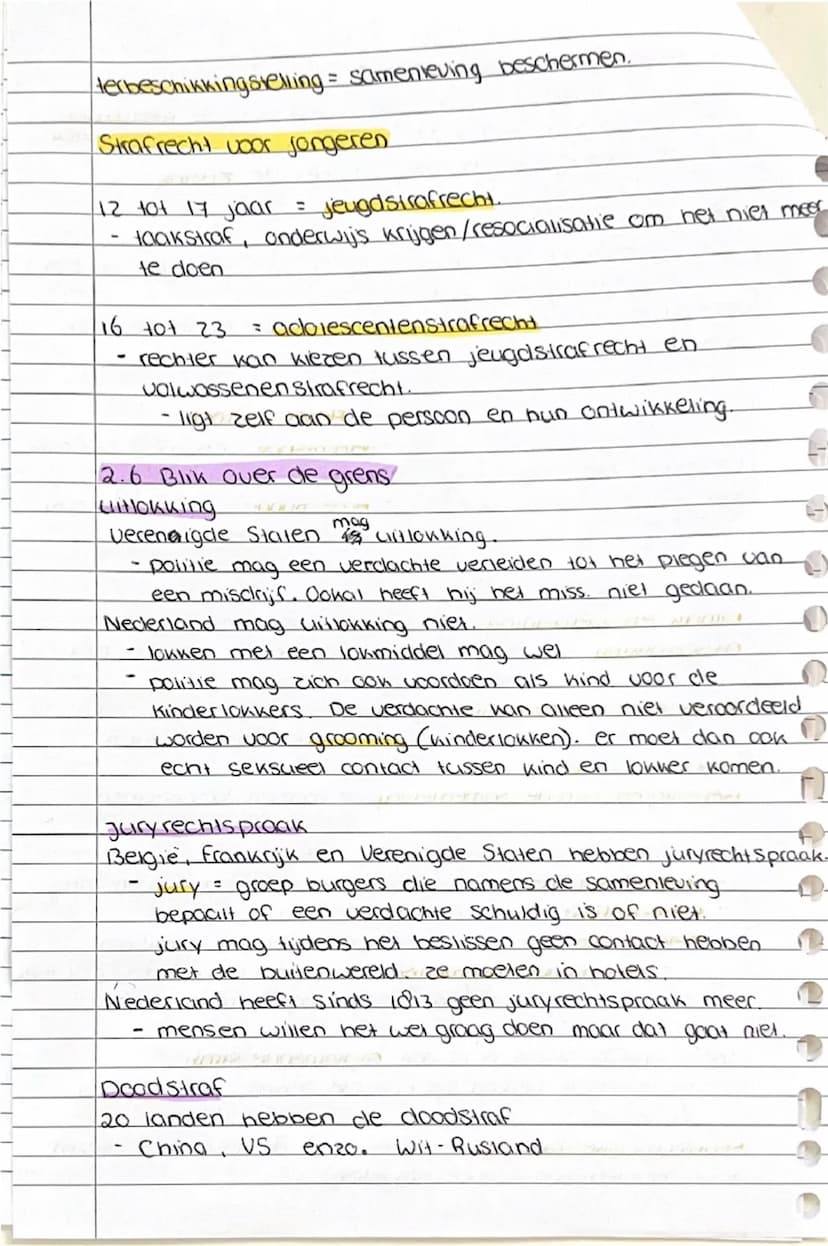 terbeschikkingstelling = samenleving beschermen.
Strafrecht voor jongeren
12 tot 17 jaar = jeugdstrafrecht.
- taakstraf, onderwijs krijgen/resocialisatie om het niet meer
te doen
16 tot 23 = adolescentenstrafrecht
- rechter kan kiezen tussen jeugdstrafrecht en
volwassenenstrafrecht.
- ligt zelf aan de persoon en hun ontwikkeling.
2.6 Blik over de grens
uitlokking
Verenigde Staten mag uitlokking.
- politie mag een verdachte verleiden tot het plegen van
een misdrijf. Ookal heeft hij het miss. niet gedaan.
Nederland mag uitlokking niet.
- lokken met een lokmiddel mag wel
- politie mag zich ook voordoen als kind voor de
kinderlokkers. De verdachte kan alleen niet veroordeeld
worden voor grooming (kinderlokken). er moet dan ook
echt seksueel contact tussen kind en lokker komen.
juryrechtspraak
België, Frankrijk en Verenigde Staten hebben juryrechtspraak.
- jury = groep burgers die namens de samenleving
bepaalt of een verdachte schuldig is of niet.
jury mag tijdens het beslissen geen contact hebben
met de buitenwereld. ze moeten in hotels.
Nederland heeft sinds 1813 geen juryrechtspraak meer.
- mensen willen het wel graag doen maar dat gaat niet.
Doodstraf
20 landen hebben de doodstraf
- China, VS enzo. Wit-Rusland